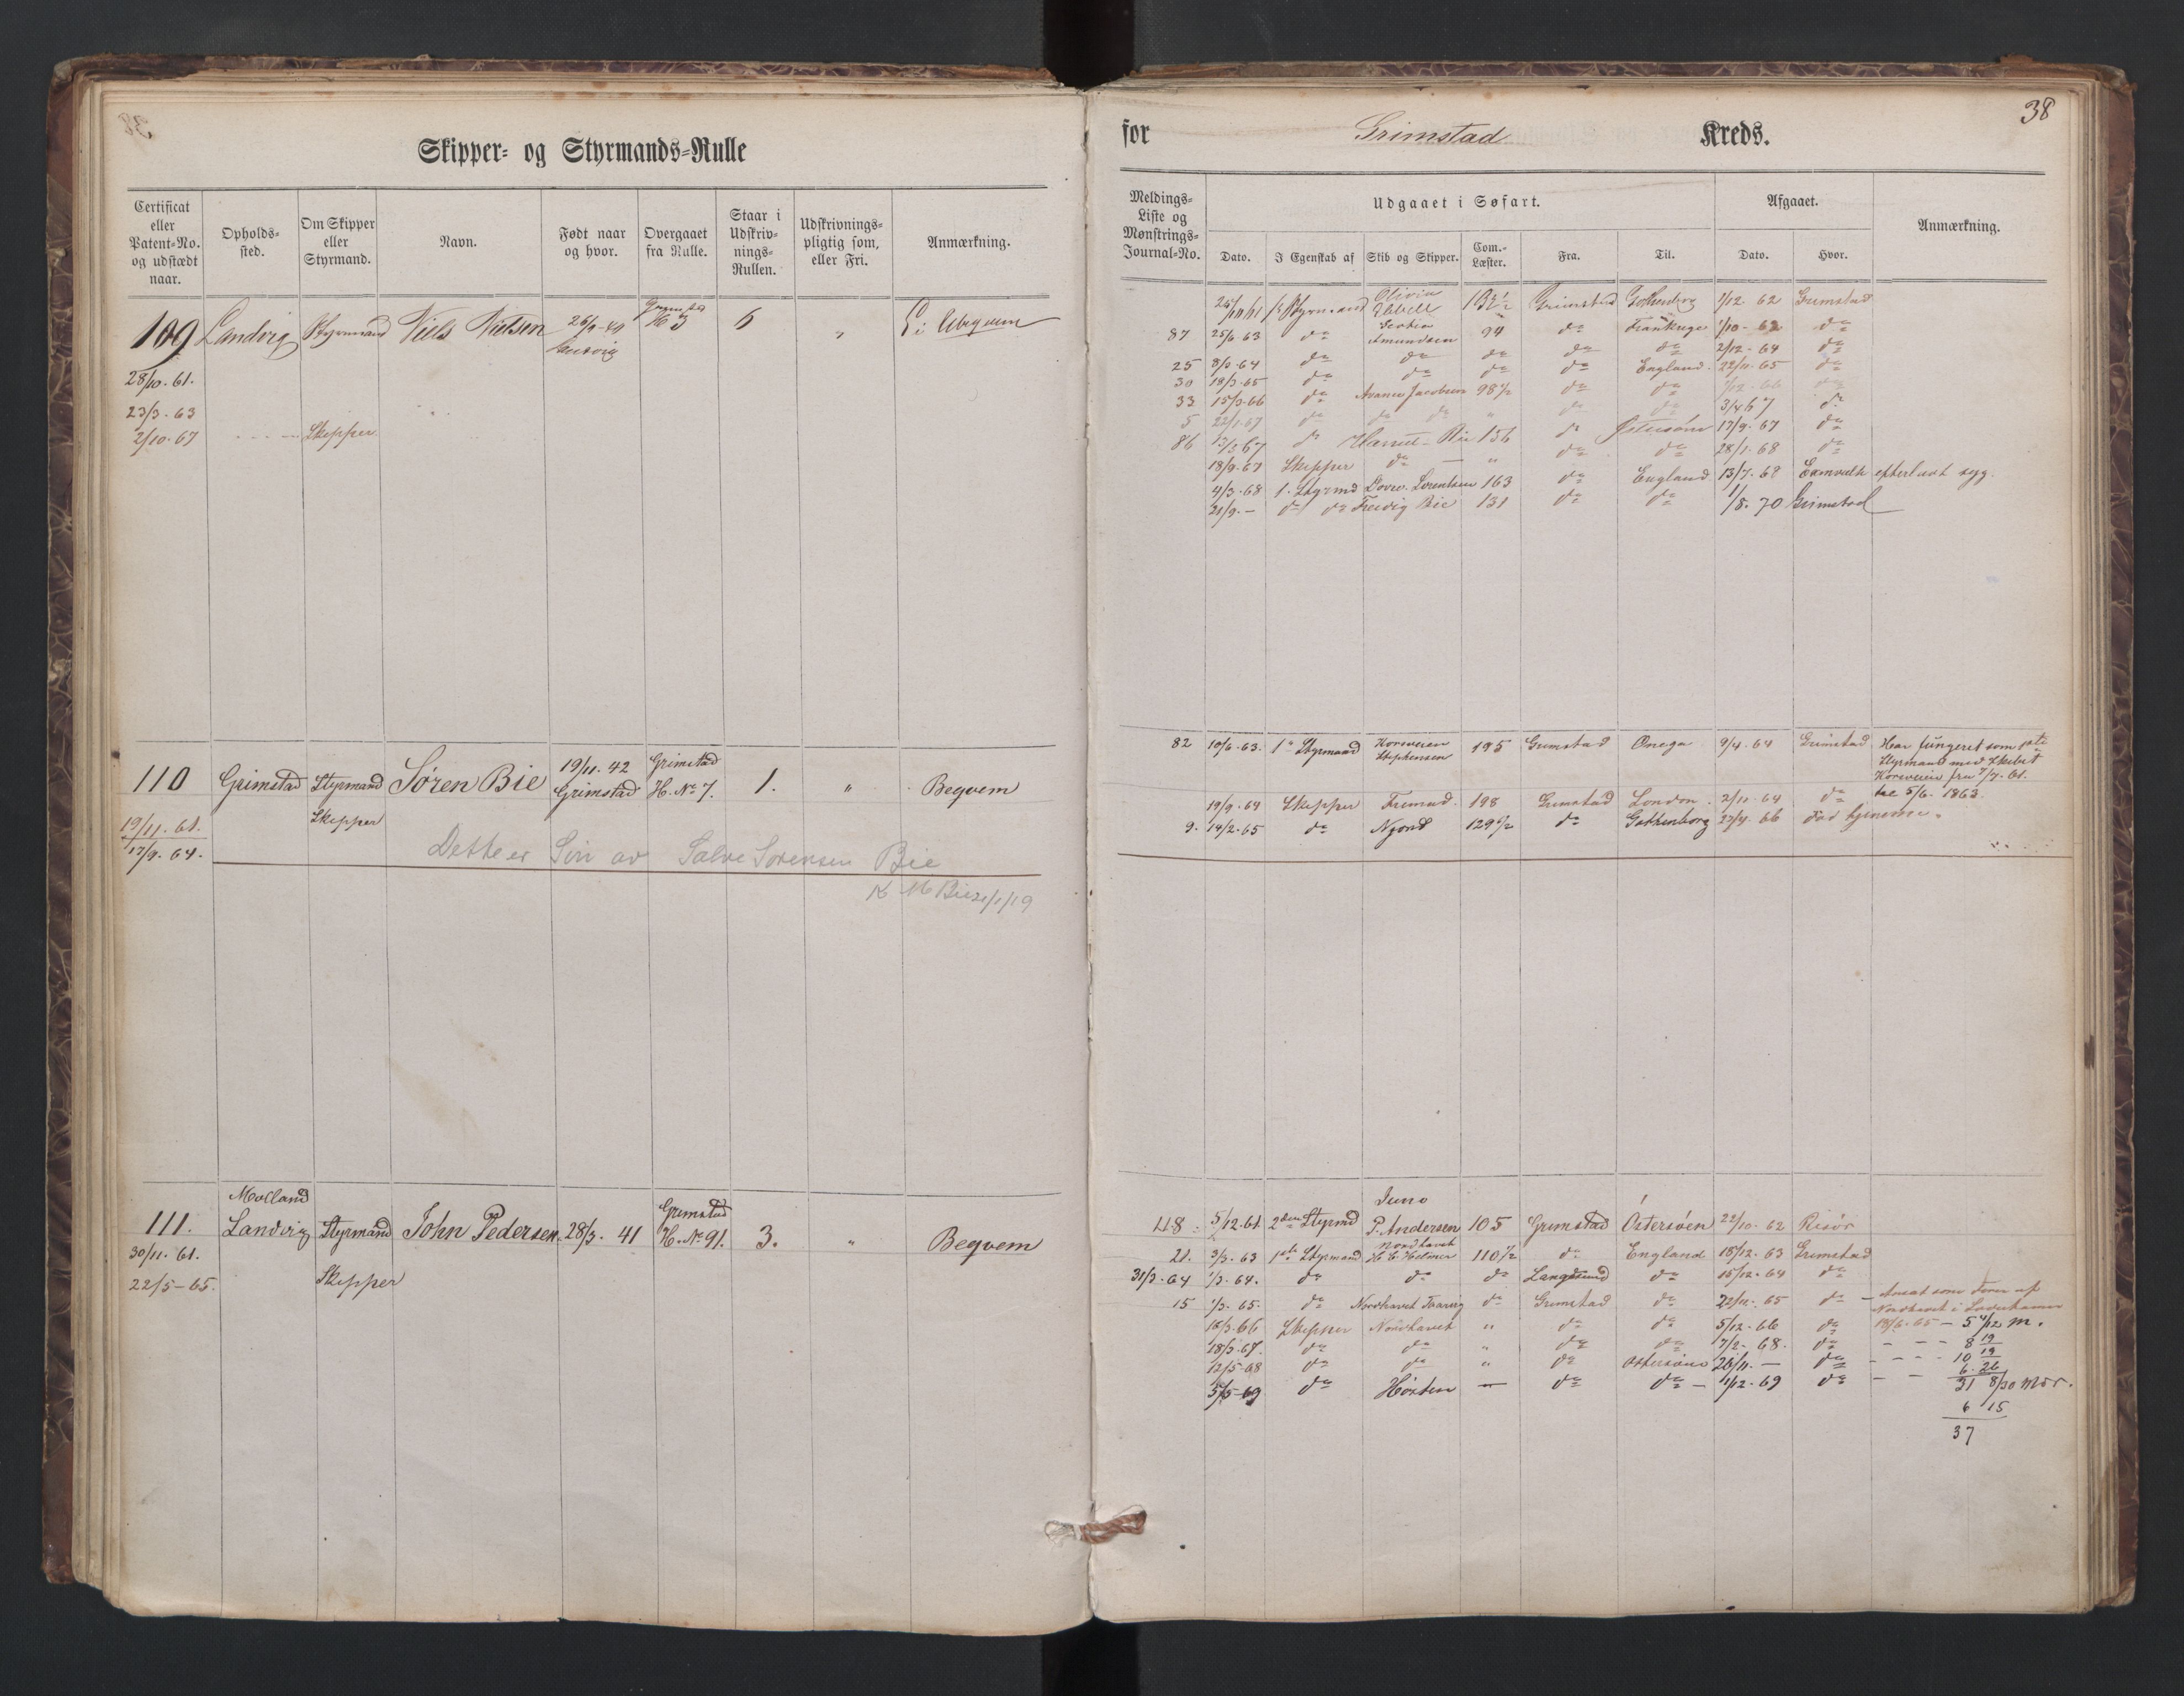 38
Skipper- og Styrmands-Rulle
Certificat eller Patent-No. og udstædt naar.
Opholds-sted.
Om Skipper eller Styrmand.
Navn.
Født naar og hvor.
Overgaaet fra Rulle.
Staar i Udskriv-nings-Rullen.
Udskrivnings-pligtig som, eller Fri.
Anmærkning.
109 Landvig Styrmand Niels Nielsen Grimstad H 3 6 "
28/10. 61.
23/3. 63
2/10. 67 Skipper
110 Grimstad Styrmand Søren Bie 19/11. 42 Grimstad Grimstad H. No 7. 1. " Begvem
Skipper
19/11. 61.
17/9. 64.
Dette er Søn av Salve Sørensen Bie
K M Bie 21/1/19
Molland
111. Landvig Styrmand John Pedersen 28/3. 41 Grimstad H. No 91. 3. " Begvem
30/11. 61.
22/5 - 65. Skipper
for Grimstad Kreds.
38
Meldings-Liste og Mønstrings-Journal-No.
Udgaaet i Søfart.
Afgaaet.
Anmærkning.
Dato.
I Egenskab af
Skib og Skipper.
Com.-Læster.
Fra.
Til.
Dato.
Hvor.
Olivia
Styrmand Grimstad 1/12. 62 Grimstad
87 25/6 63 do Amundsen 94 do 1/10 - 63 do
25 8/3. 64 do do do do do 2/12. 64 do
30 18/3. 65 do do do do England 22/11. 65 do
33 15/3. 66 do Jacobsen 98 1/2 do do 1/12. 66 do
5 22/1. 67 do do do " do do 3/4 67 do
86 67 do Bie 156 do 17/9. 67 do
18/9. 67 Skipper do " do do 28/1. 68 do
4/3. 68 1. Styrmd Lorentsen 163 do England 13/7. 68 efterladt syg.
21/9. - do do Freidig Bie 131 do do 1/8. 70 Grimstad
82 10/6. 63. 1e Styrmand Korsveien Stephensen 195 Grimstad Onega 9/4. 64 Grimstad Har fungeret som
Styrmand med Skibet
Korsveien fra 7/7. 61.
til 5/6. 1863.
19/9. 64 Skipper 198 Grimstad London 2/11. 64 do
9. 14/2. 65 do 129 1/2 do Gothenborg 27/4. 66
Juno
48 5/12. 61. 2den Styrmd P. Andersen 105 Grimstad Østersøen 22/10. 62 Risør
Nordhavet
21. 3/3. 63 1ste Styrmand 110 1/2 do England 18/12. 63 Grimstad
31/3. 64 1/3. 64. do do do Langesund do 15/12. 64 do
15 1/3. 65. do Nordhavet do Grimstad do 22/11. 65 do
18/3. 66 Skipper Nordhavet " do do 5/12. 66 do 18/6. 65 -
18/3. 67. do do " do do 7/2. 68. do 8 19
12/5. 68 do do " do Østersøen 26/11. - do 10 19
6. 26
5/5 69 do Høsten - do do - 1/12. 69 do 31 8/30
6 15
37